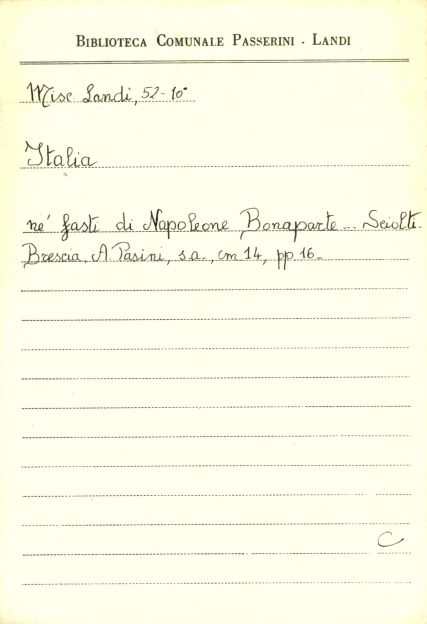 BIBLIOTECA COMUNALE PASSERINI - LANDI
Misc. Landi, 52-10°
Italia
ne' fasti di Napoleone Bonaparte... Sciolti.
Brescia, A. Pasini, s.a., cm 14, pp 16.
C